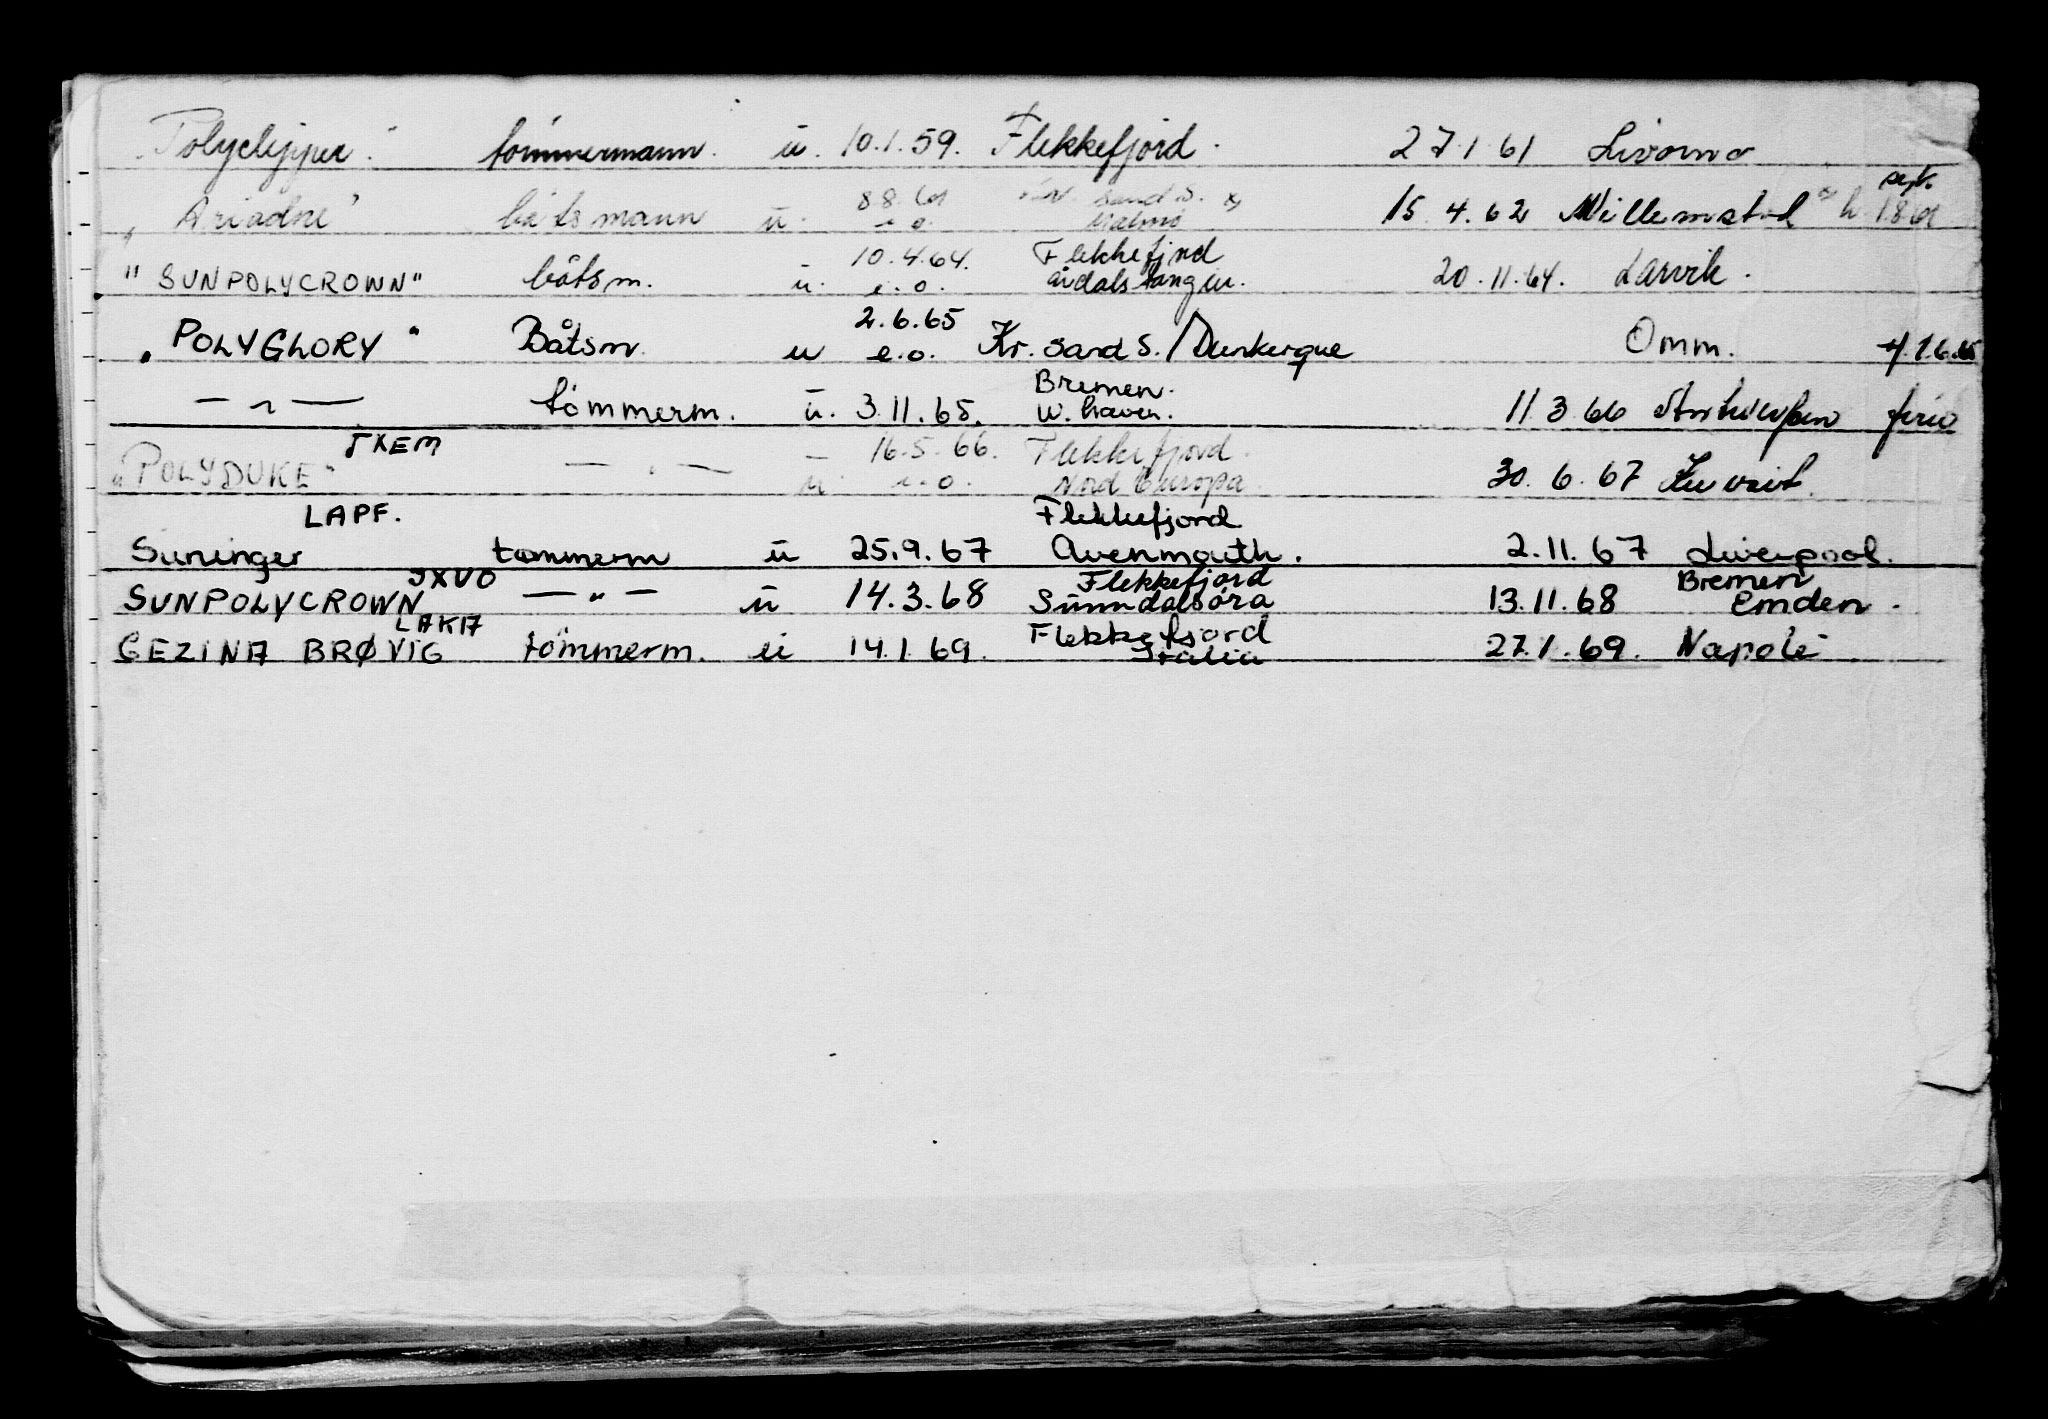 "Polyclipper" tömmermann. ü. 10.1.59. Flekkefjord. 27.1.61 Livorno
"Ariadne" båtsmann ü. 8.8.61 e.o. Kr. Sand S. Malmö 15.4.62 Willemstad sept.
"SUNPOLYCROWN" båtsm. ü. 10.4.64. e.o. Flekkefjord Årdalstangen. 20.11.64. Larvik.
"POLYGLORY" Båtsm. u 2.6.65 e.o. Kr. sand S./Dunkerque Omm. 1.6.65
— " — tömmerm. ü. 3.11.65. Bremen. W. haven. 11.3.66 Antwerpen ferie
"POLYDUKE" JXEM — " — ü 16.5.66. e.o. Flekkefjord. Nord Europa. 30.6.67 Kuwait.
Suninger LAPF. tømmerm ü 25.9.67 Flekkefjord Avenmouth. 2.11.67 Liverpool.
SUNPOLYCROWN JXVO — " — ü 14.3.68 Flekkefjord Sunndalsöra 13.11.68 Bremen Emden.
GEZINA BRØVIG LAKA tömmerm. ü 14.1.69. Flekkefjord Italia 27.1.69. Napoli